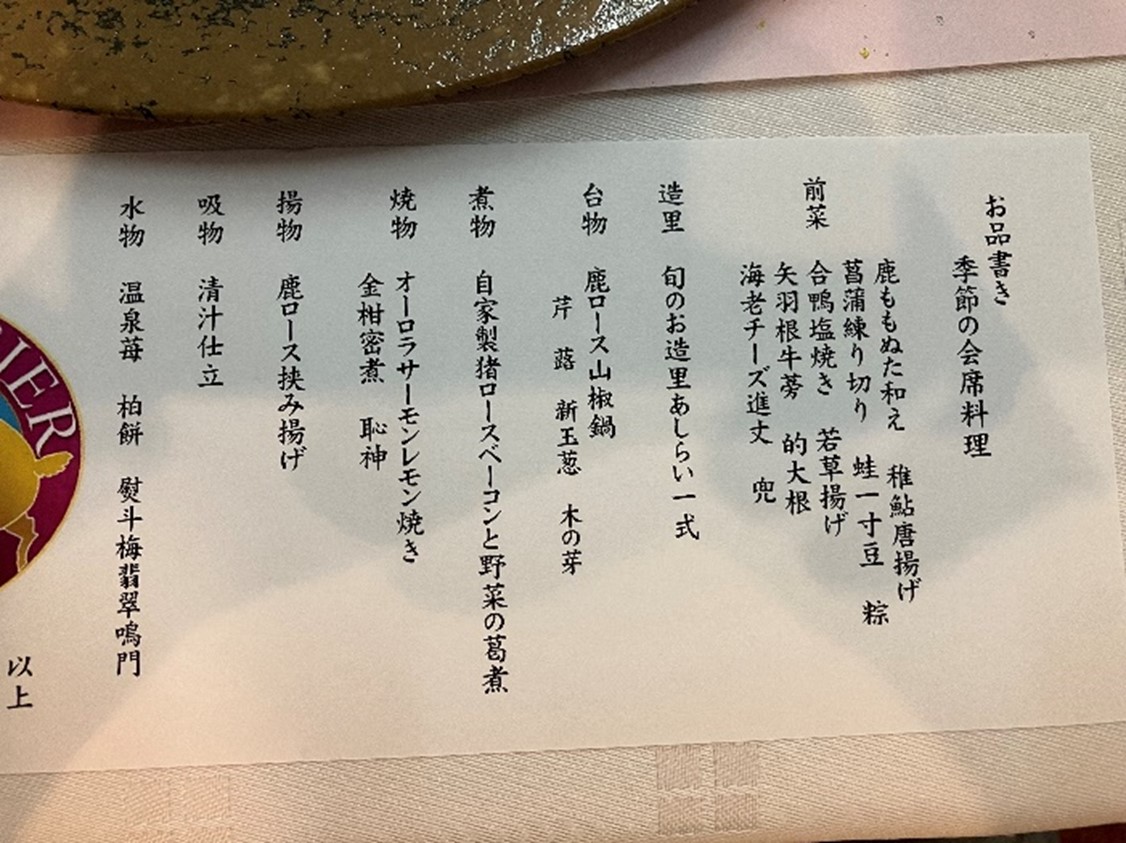 お品書き
季節の会席料理
前菜 鹿ももぬた和え 稚鮎唐揚げ
菖蒲練り切り 蛙一寸豆 粽
合鴨塩焼き 若草揚げ
矢羽根牛蒡 的大根
海老チーズ進丈 兜
造里 旬のお造里あしらい一式
台物 鹿ロース山椒鍋
芹 蕗 新玉葱 木の芽
煮物 自家製猪ロースベーコンと野菜の葛煮
焼物 オーロラサーモンレモン焼き
金柑密煮 恥神
揚物 鹿ロース挟み揚げ
吸物 清汁仕立
水物 温泉苺 柏餅 熨斗梅翡翠鳴門
以上
IER